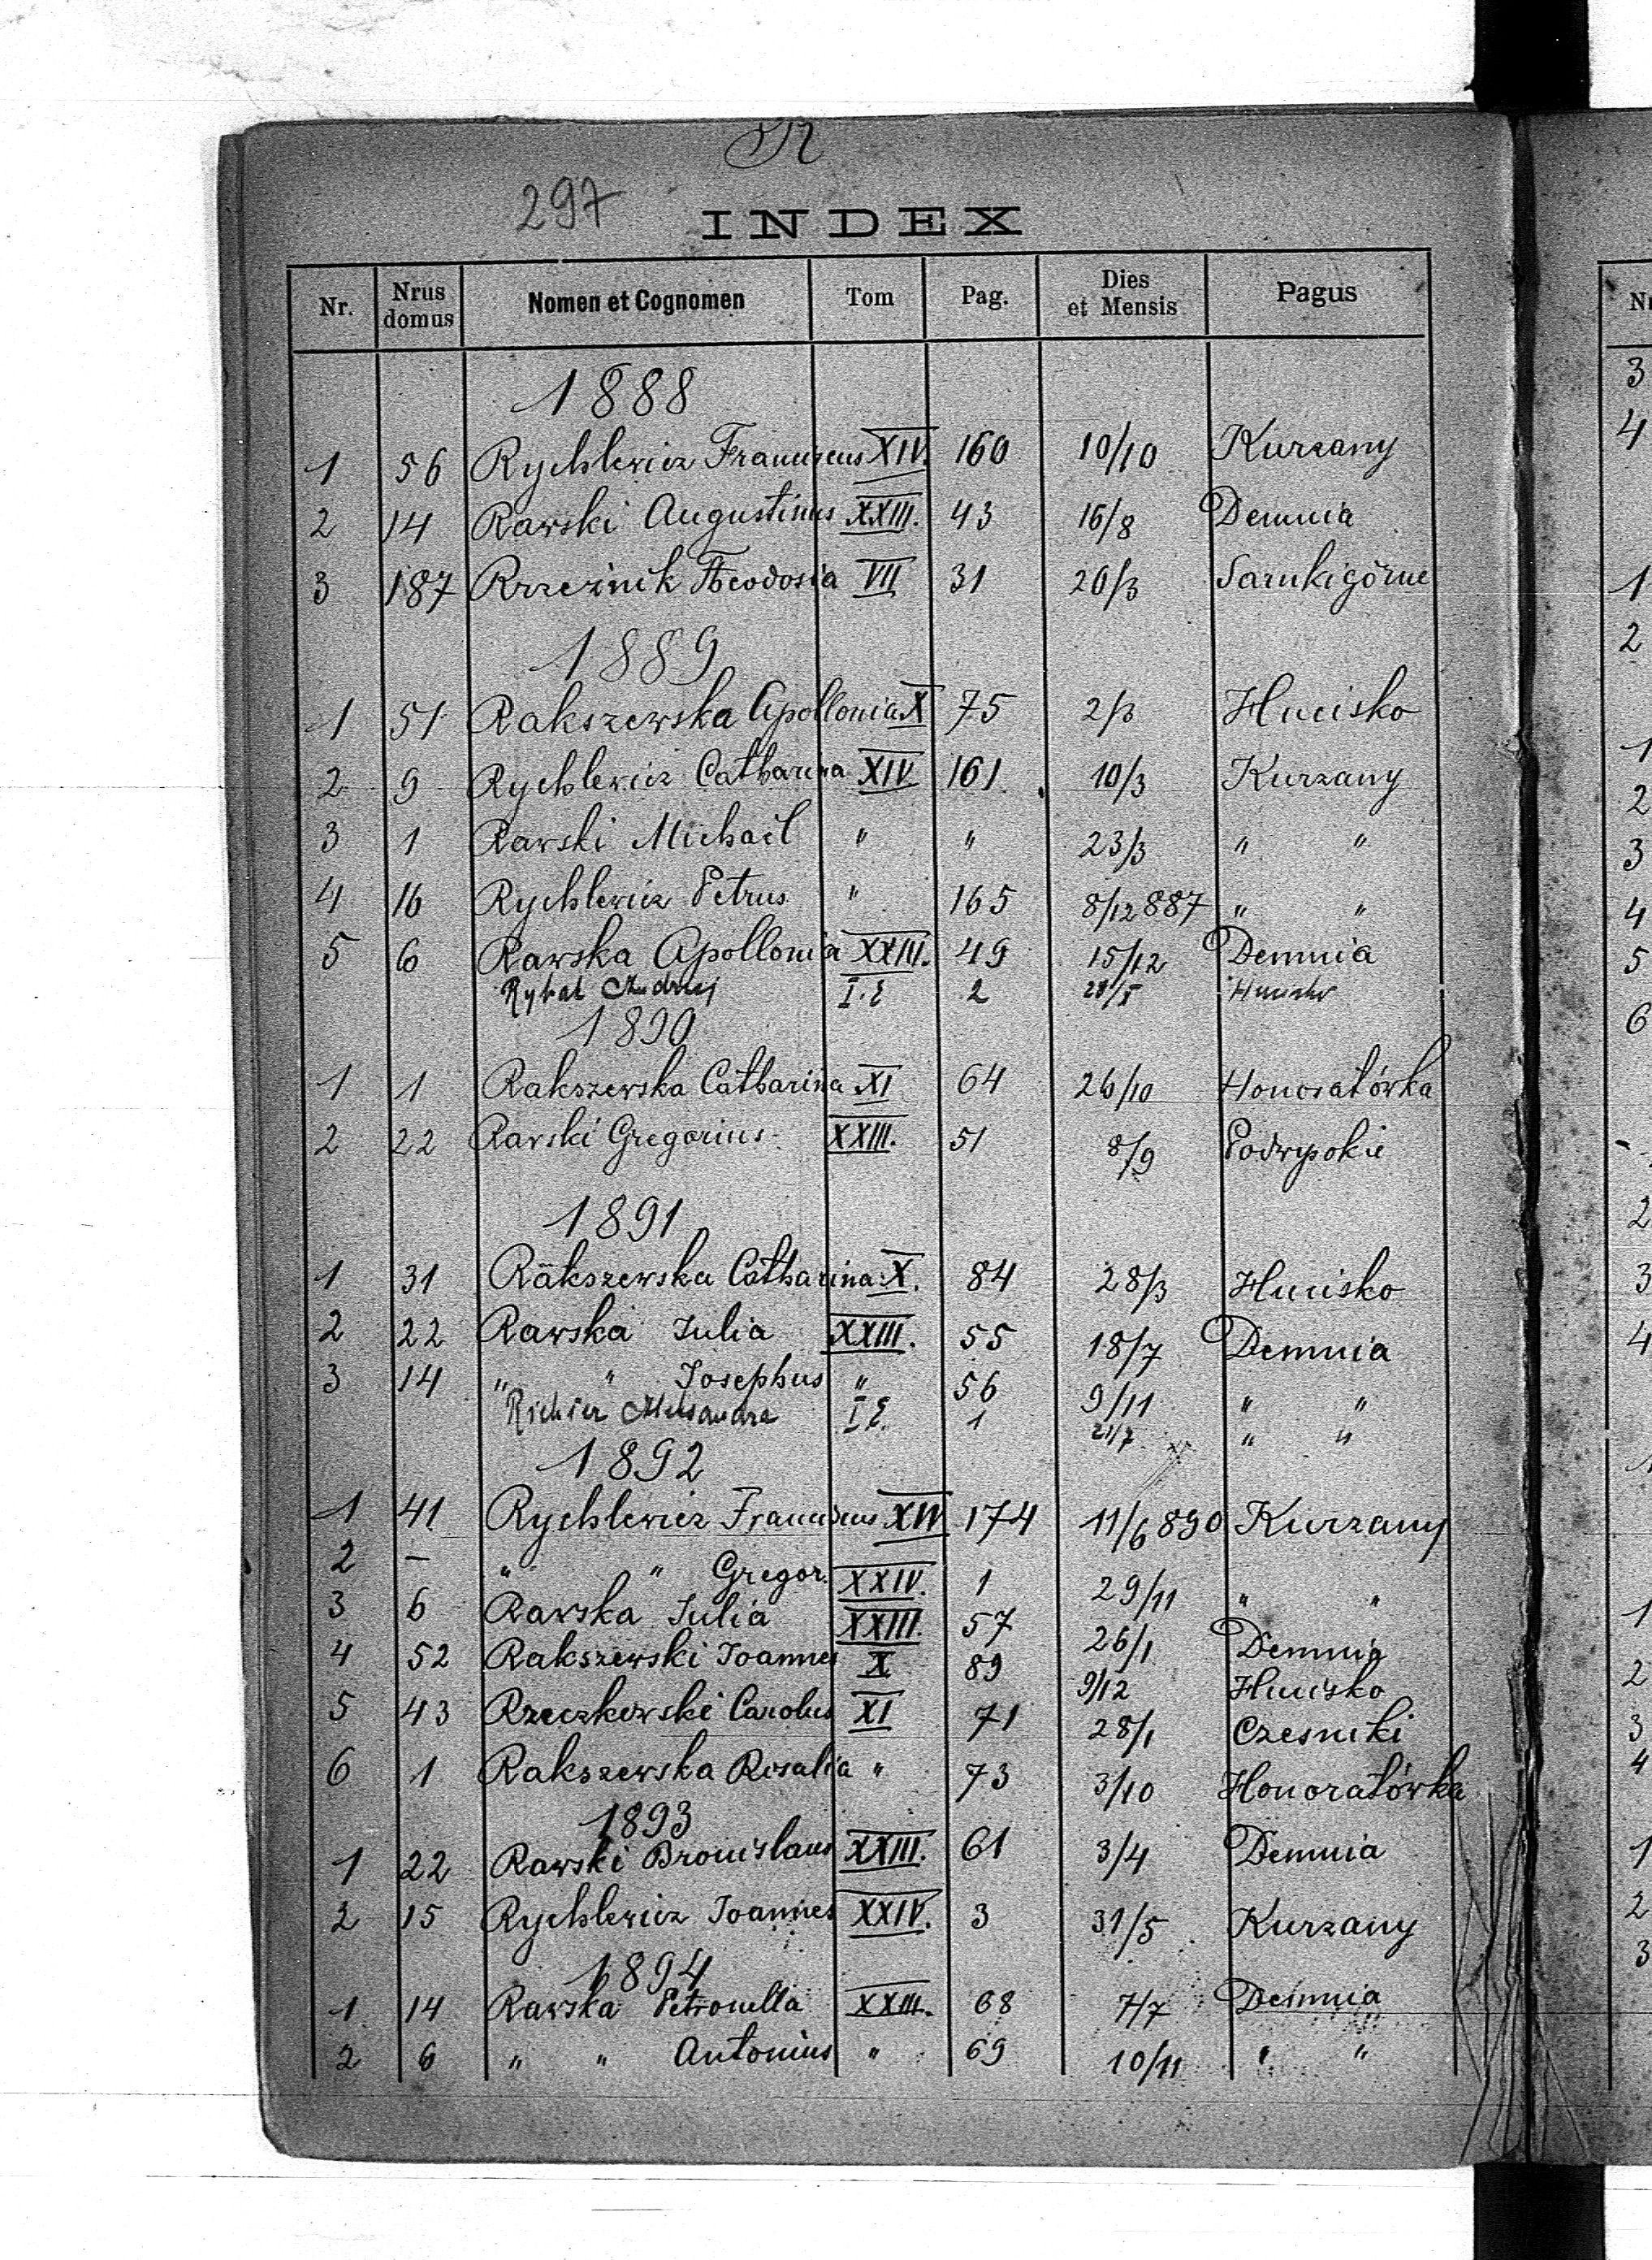 R
297
INDEX
Nr. Nrus domus Nomen et Cognomen Tom Pag. Dies et Mensis Pagus
1888
1 56 Rychlewicz Franciscus XIV. 160 10/10 Kurzany
2 14 Rawski Augustinus XXIII. 43 16/8 Demnia
3 187 Rrzeźnik Theodosia VII 31 20/3 Sarnki górne
1889
1 51 Rakszewska Apollonia X 75 2/3 Hucisko
2 9 Rychlewicz Catharina XIV 161 10/3 Kurzany
3 1 Rawski Michaël " " 23/3 " "
4 16 Rychlewicz Petrus " 165 8/12 887 " "
5 6 Rawska Apollonia XXIII. 49 15/12 Demnia
Rybak Andrzej I.E 2 28/5 Hucisko
1890
1 1 Rakszewska Catharina XI 64 26/10 Honoratówka
2 22 Rawski Gregorius XXIII. 51 8/9 Podwysokie
1891
1 31 Rakszewska Catharina X. 84 28/3 Hucisko
2 22 Rawska Julia XXIII. 55 18/7 Demnia
3 14 " " Josephus " 56 9/11 " "
I E. 1 21/7 " "
1892
1 41 Rychlewicz Franciscus XIV 174 11/6 890 Kurzany
2 – " " Gregor. XXIV. 1 29/11 " "
3 6 Rawska Julia XXIII. 57 26/1 Demnia
4 52 Rakszewski Joannes X 89 9/12 Hucisko
5 43 Rzeczkowski Carolus XI 71 28/1 Czesniki
6 1 Rakszewska Rosalia " 73 3/10 Honoratówka
1893
1 22 Rawski Bronislaus XXIII. 61 3/4 Demnia
2 15 Rychlewicz Joannes XXIV. 3 31/5 Kurzany
1894
1 14 Rawska Petronella XXIII. 68 7/7 Demnia
2 6 " " Antonius " 69 10/11 " "